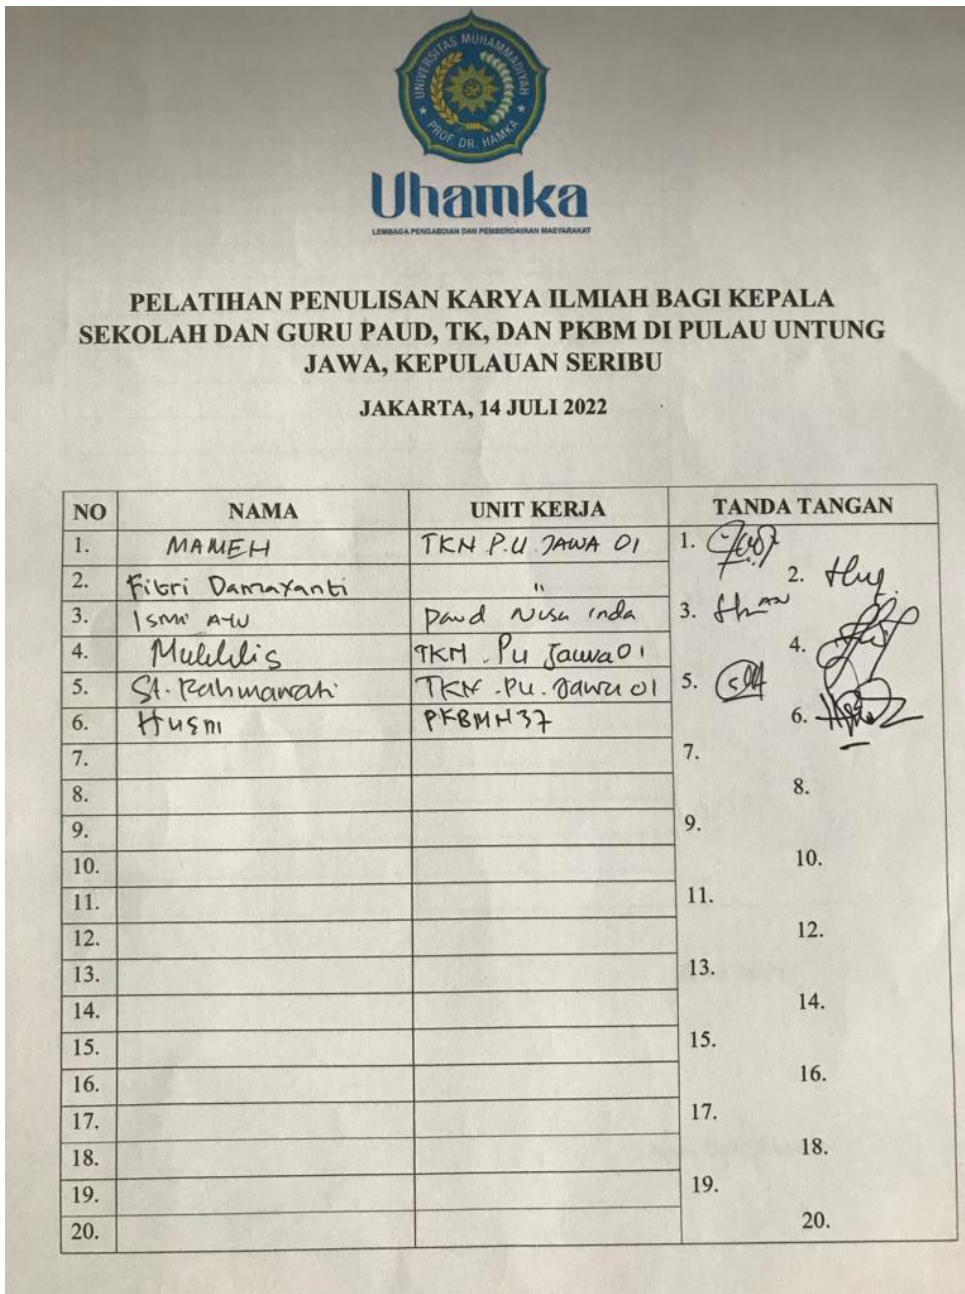 UNIVERSITAS MUHAMMADIYAH
PROF. DR. HAMKA
Uhamka
LEMBAGA PENGABDIAN DAN PEMBERDAYAAN MASYARAKAT
PELATIHAN PENULISAN KARYA ILMIAH BAGI KEPALA
SEKOLAH DAN GURU PAUD, TK, DAN PKBM DI PULAU UNTUNG
JAWA, KEPULAUAN SERIBU
JAKARTA, 14 JULI 2022
NO NAMA UNIT KERJA TANDA TANGAN
1. MAMEH TKN P.U JAWA 01 1.
2. Fitri Damayanti " 2.
3. Ismi Ayu Paud Nusa inda 3.
4. Mukhlis TKN . Pu Jawa 01 4.
5. St. Rahmawati TKN . Pu . Jawa 01 5.
6. Husni PKBMN 37 6.
7. 7.
8. 8.
9. 9.
10. 10.
11. 11.
12. 12.
13. 13.
14. 14.
15. 15.
16. 16.
17. 17.
18. 18.
19. 19.
20. 20.